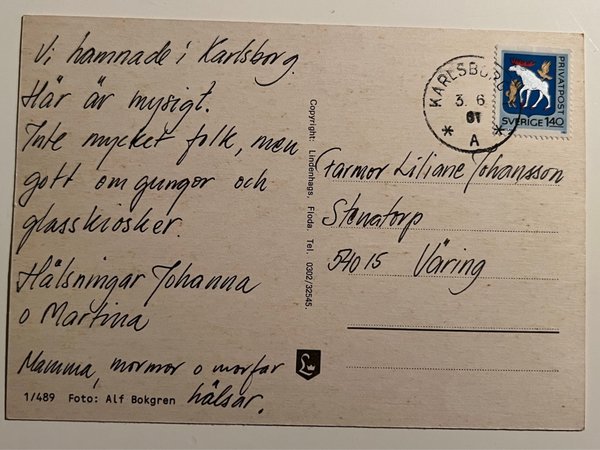 Vi hamnade i Karlsborg.
Här är mysigt.
Inte mycket folk, men
gott om gungor och
glasskiosker.
Hälsningar Johanna
o Martina
Mamma, mormor o morfar
hälsar.
1/489 Foto: Alf Bokgren
Copyright: Lindenhags, Floda. Tel. 0302/32545.
KARLSBORG
3. 6.
81
* A *
PRIVATPOST
SVERIGE 140
Farmor Liliane Johansson
Stenatorp
540 15 Väring
L